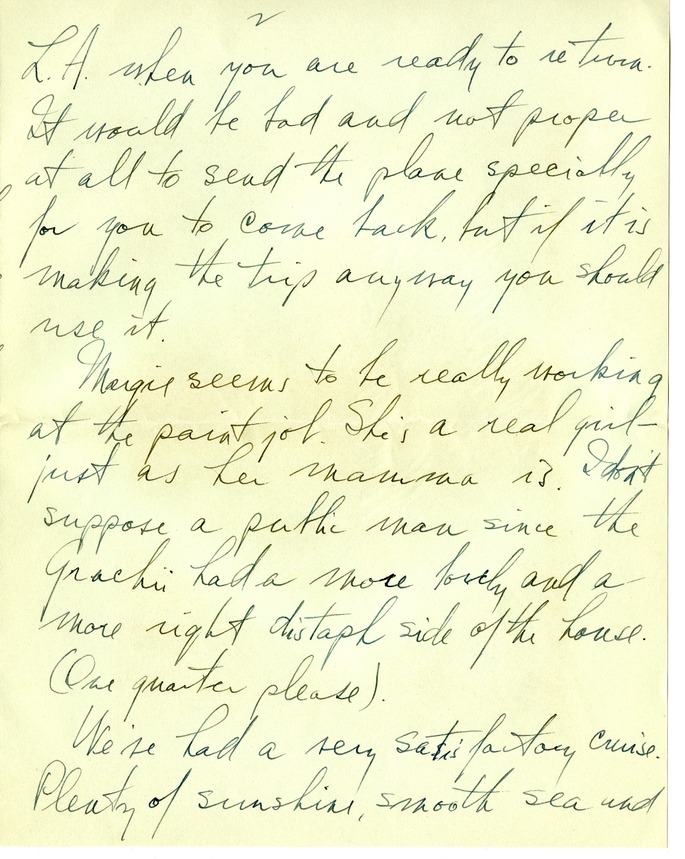 2
L.A. when you are ready to return.
It would be bad and not proper
at all to send the plane specially
for you to come back, but if it is
making the trip anyway you should
use it.
Margie seems to be really working
at the paint job. She is a real girl –
just as her mamma is. I don't
suppose a public man since the
Grachii had a more lovely and a
more right distaph side of the house.
(One quarter please).
We've had a very satisfactory cruise.
Plenty of sunshine, smooth sea and